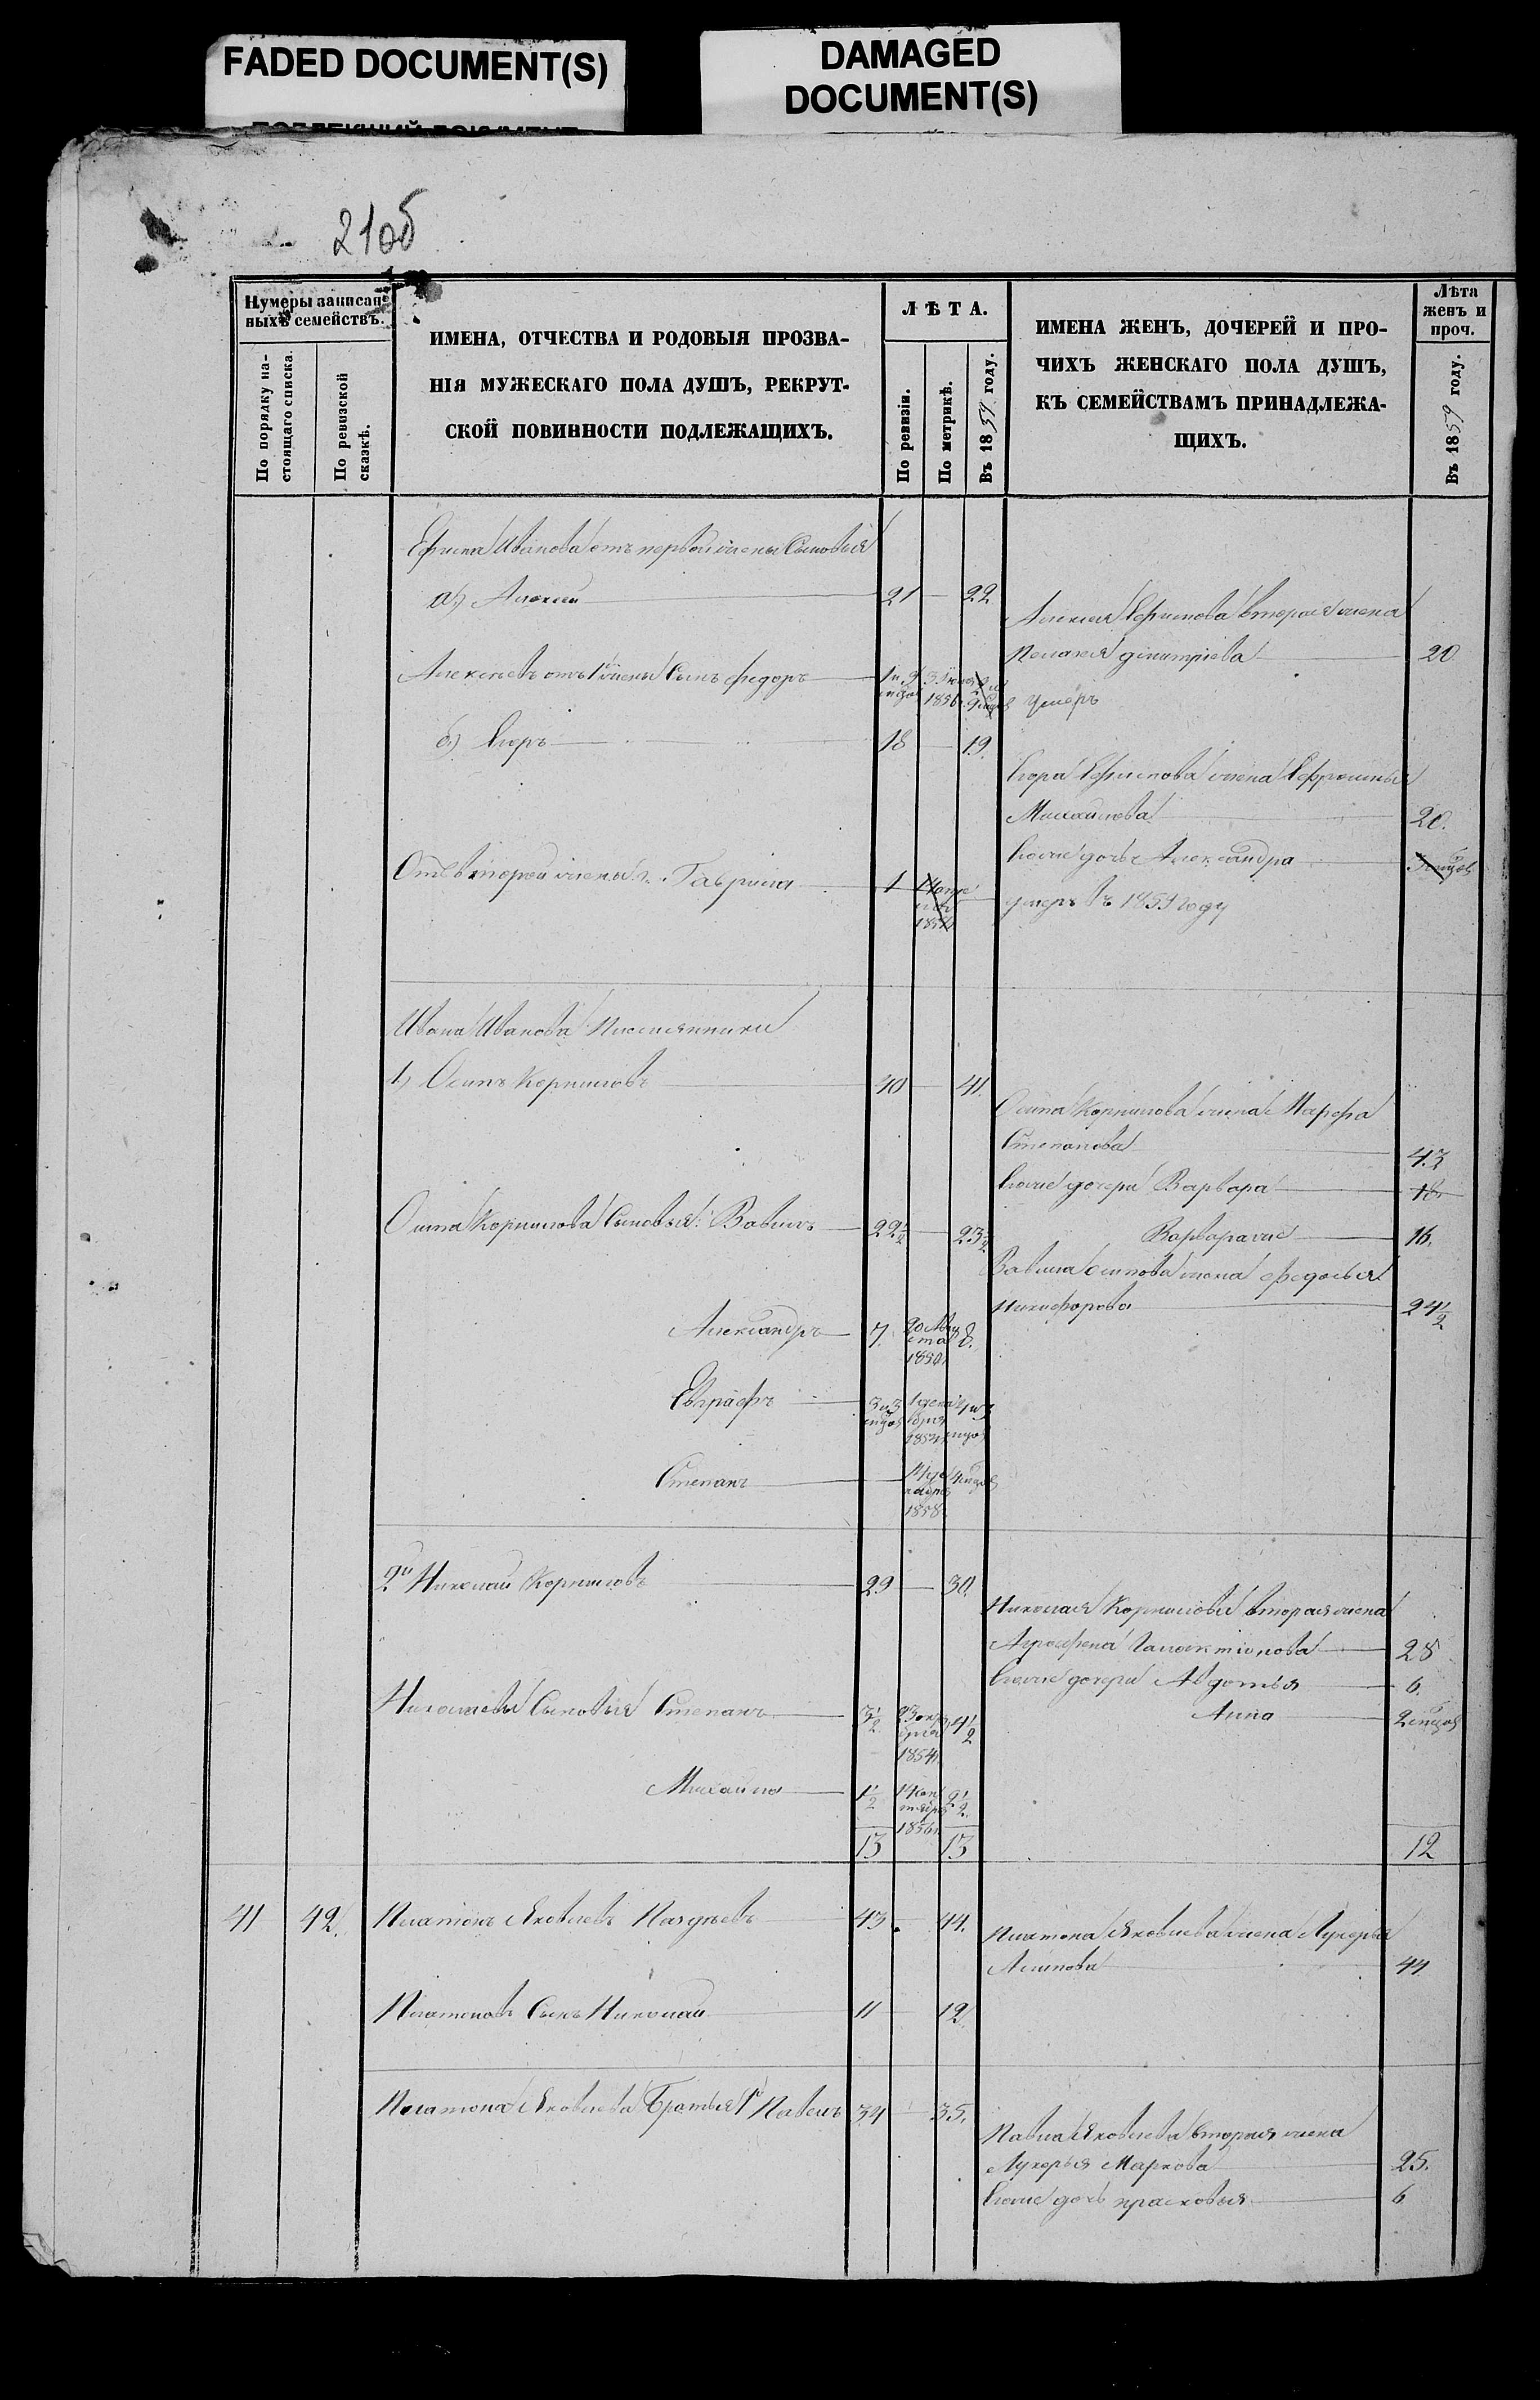 FADED DOCUMENT(S)
DAMAGED
DOCUMENT(S)
21об
Нумеры записан-
ныхъ семействъ.
По порядку на-
стоящаго списка.
По ревизской
сказкѣ.
ИМЕНА, ОТЧЕСТВА И РОДОВЫЯ ПРОЗВА-
НІЯ МУЖЕСКАГО ПОЛА ДУШЪ, РЕКРУТ-
СКОЙ ПОВИННОСТИ ПОДЛЕЖАЩИХЪ.
ЛѢТА.
По ревизіи.
По метрикѣ.
Въ 1859 году.
ИМЕНА ЖЕНЪ, ДОЧЕРЕЙ И ПРО-
ЧИХЪ ЖЕНСКАГО ПОЛА ДУШЪ,
КЪ СЕМЕЙСТВАМЪ ПРИНАДЛЕЖА-
ЩИХЪ.
Лѣта
женъ и
проч.
Въ 1859 году.
Ефима Иванова отъ первой жены Сыновья
а) Алексей 21 22
Алексея Ефимова вторая жена
Пелагея дмитріева 20
Алексеевъ отъ 1й жены Сынъ федоръ 1856 умеръ
б) Егоръ 18 19.
Егора Ефимова жена Ефросинья
Михайлова 20.
Егоже дочь Александра
Отъ второй жены Гаврила 1
умеръ въ 1859 году
Ивана Иванова Племянники
1) Осипъ Корниловъ 40 41.
Осипа Корнилова жена Марфа
Степанова 43
Егоже дочери Варвара 18
Осипа Корнилова Сыновья: Вавилъ 22½ 23½
Варвара же 16.
Вавила осипова жена федосья
Никифорова 24½
Александръ 7. 20 Авгу
ста 8.
1850
Евграфъ
Степанъ 1858
2й Николай Корниловъ 29 30.
Николая Корнилова вторая жена
Аграфена Галактіонова 28
Егоже дочери Авдотья 6.
Николаевы Сыновья Степанъ 3½ 4½
1854
Анна 2 мцов
Михаила 1½ 2½.
1856
13 13 12
41 42. Платонъ Яковлевъ 43 44.
Платона Яковлева жена Лукерья
Асипова 44
Платоновъ Сынъ Николай 11 12.
Платона Яковлева Братья 1й Павелъ 34 35.
Павла Яковлева вторая жена
Лукерья Маркова 25.
Егоже дочь прасковья 6